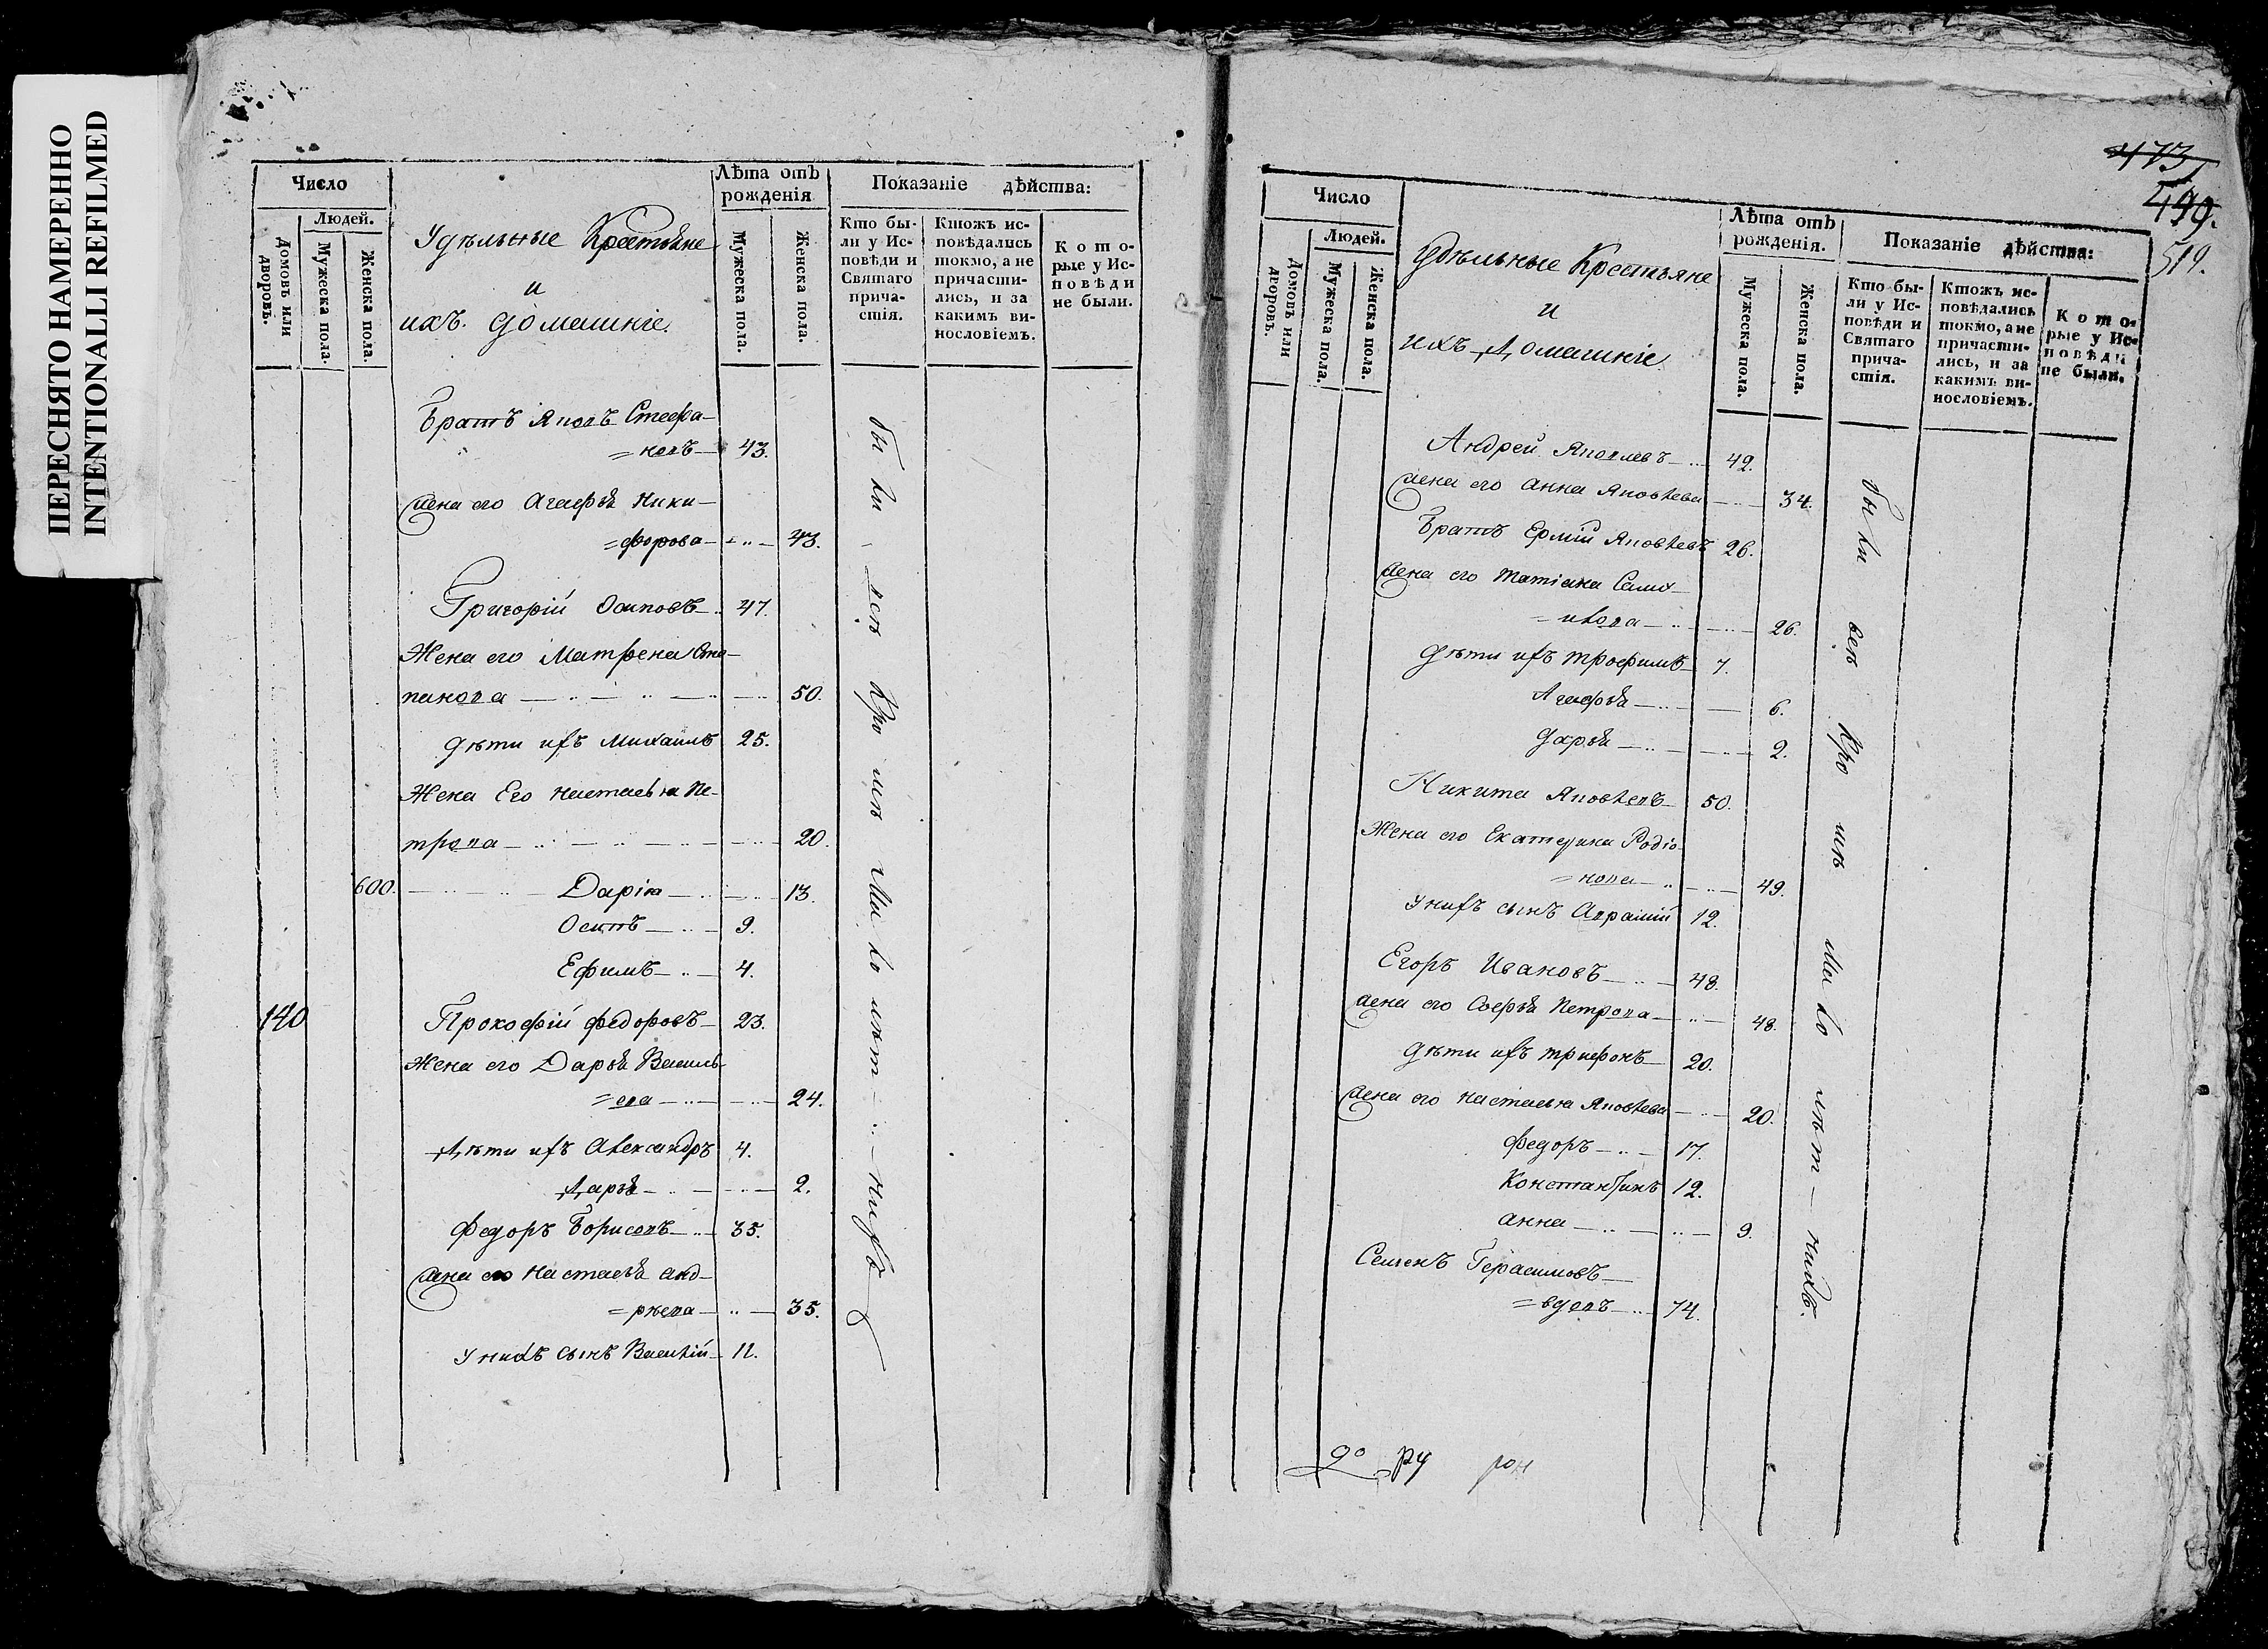 ПЕРЕСНЯТО НАМЕРЕННО
INTENTIONALLI REFILMED
Число
Людей.
Домовъ или дворовъ.
Мужеска пола.
Женска пола.
Удѣльные Крестьяне
и
ихъ домашніе.
Лѣта отъ рожденія
Мужеска пола.
Женска пола.
Показаніе дѣйства:
Кто бы-
ли у Ис-
повѣди и
Святаго
прича-
стія.
Ктожъ ис-
повѣдались
токмо, а не
причасти-
лись, и за
какимъ ви-
нословіемъ.
Кото-
рые у Ис-
повѣди
не были.
Братъ Яковъ Стефа-
=новъ 43.
Жена его Агафья Ники-
=форова 43.
Григорій Осиповъ 47.
Жена его Матрена Сте-
панова 50.
Дѣти ихъ Михаилъ 25.
Жена Его Настасья Пе-
трова 20.
600. Дарія 13.
Осипъ 9.
Ефимъ 4.
140 Прокофій Федоровъ 23.
Жена его Дарья Василь-
=ева 24.
Дѣти ихъ Александръ 4.
Дарья 2.
Федоръ Борисовъ 35.
Жена его Настасья Анд-
=рѣева 35.
У нихъ сынъ Василій 11.
были всѣ кромѣ малолѣт- нихъ
473
499.
519.
Число
Людей.
Домовъ или дворовъ.
Мужеска пола.
Женска пола.
Удѣльные Крестьяне
и
ихъ Домашніе
Лѣта отъ рожденія.
Мужеска пола.
Женска пола.
Показаніе дѣйства:
Кто бы-
ли у Ис-
повѣди и
Святаго
прича-
стія.
Ктожъ ис-
повѣдались
токмо, а не
причасти-
лись, и за
какимъ ви-
нословіемъ.
Кото-
рые у Ис-
повѣди
не были.
Андрей Яковлевъ 42.
Жена его Анна Яковлева 34.
Братъ Ермій Яковлевъ 26.
Жена его Татіана Само-
=йлова 26.
Дѣти ихъ Трофимъ 7.
Агафья 6.
Дарья 2.
Никита Яковлевъ 50.
Жена его Екатерина Родіо-
=нова 49.
У нихъ сынъ Аврамій 12.
Егоръ Ивановъ 48.
Жена его Софья Петрова 48.
Дѣти ихъ Трифонъ 20.
Жена его Настасья Яковлева 20.
Федоръ 17.
Константинъ 12.
Анна 9.
Семенъ Герасимовъ
=вдовъ 74.
были всѣ кромѣ малолѣт-нихъ.
ру